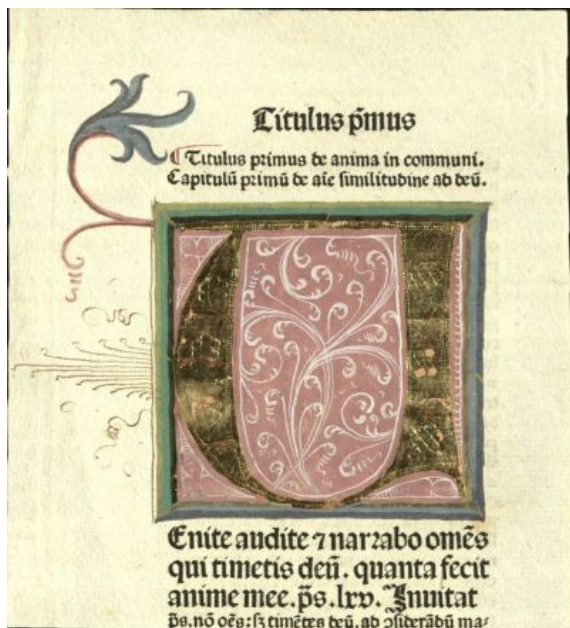 Titulus p̃mus
Titulus primus de anima in communi.
Capitulũ primũ de aĩe similitudine ad deũ.
V
Enite audite ⁊ narrabo omẽs
qui timetis deũ. quanta fecit
anime mee. p̃s. lxv. Inuitat
p̃s. nõ oẽs: sꝫ timẽtes deũ. ad ↄsiderãdũ ma⸗